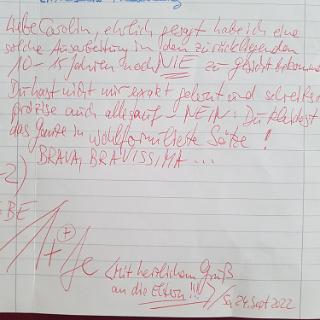 Liebe Carolin, ehrlich gesagt habe ich eine
solche Ausarbeitung in den zurückliegenden
10-15 Jahren noch NIE zu Gesicht bekommen
Du hast nicht nur exakt gelernt und schreibst
präzise auch alles auf - NEIN: Du kleidest
das Ganze in wohlformulierte Sätze!
BRAVA, BRAVISSIMA ...
-2)
BE
1+ (+)
(Mit herzlichem Gruß
an die Eltern!!!)
Sa, 24. Sept 2022